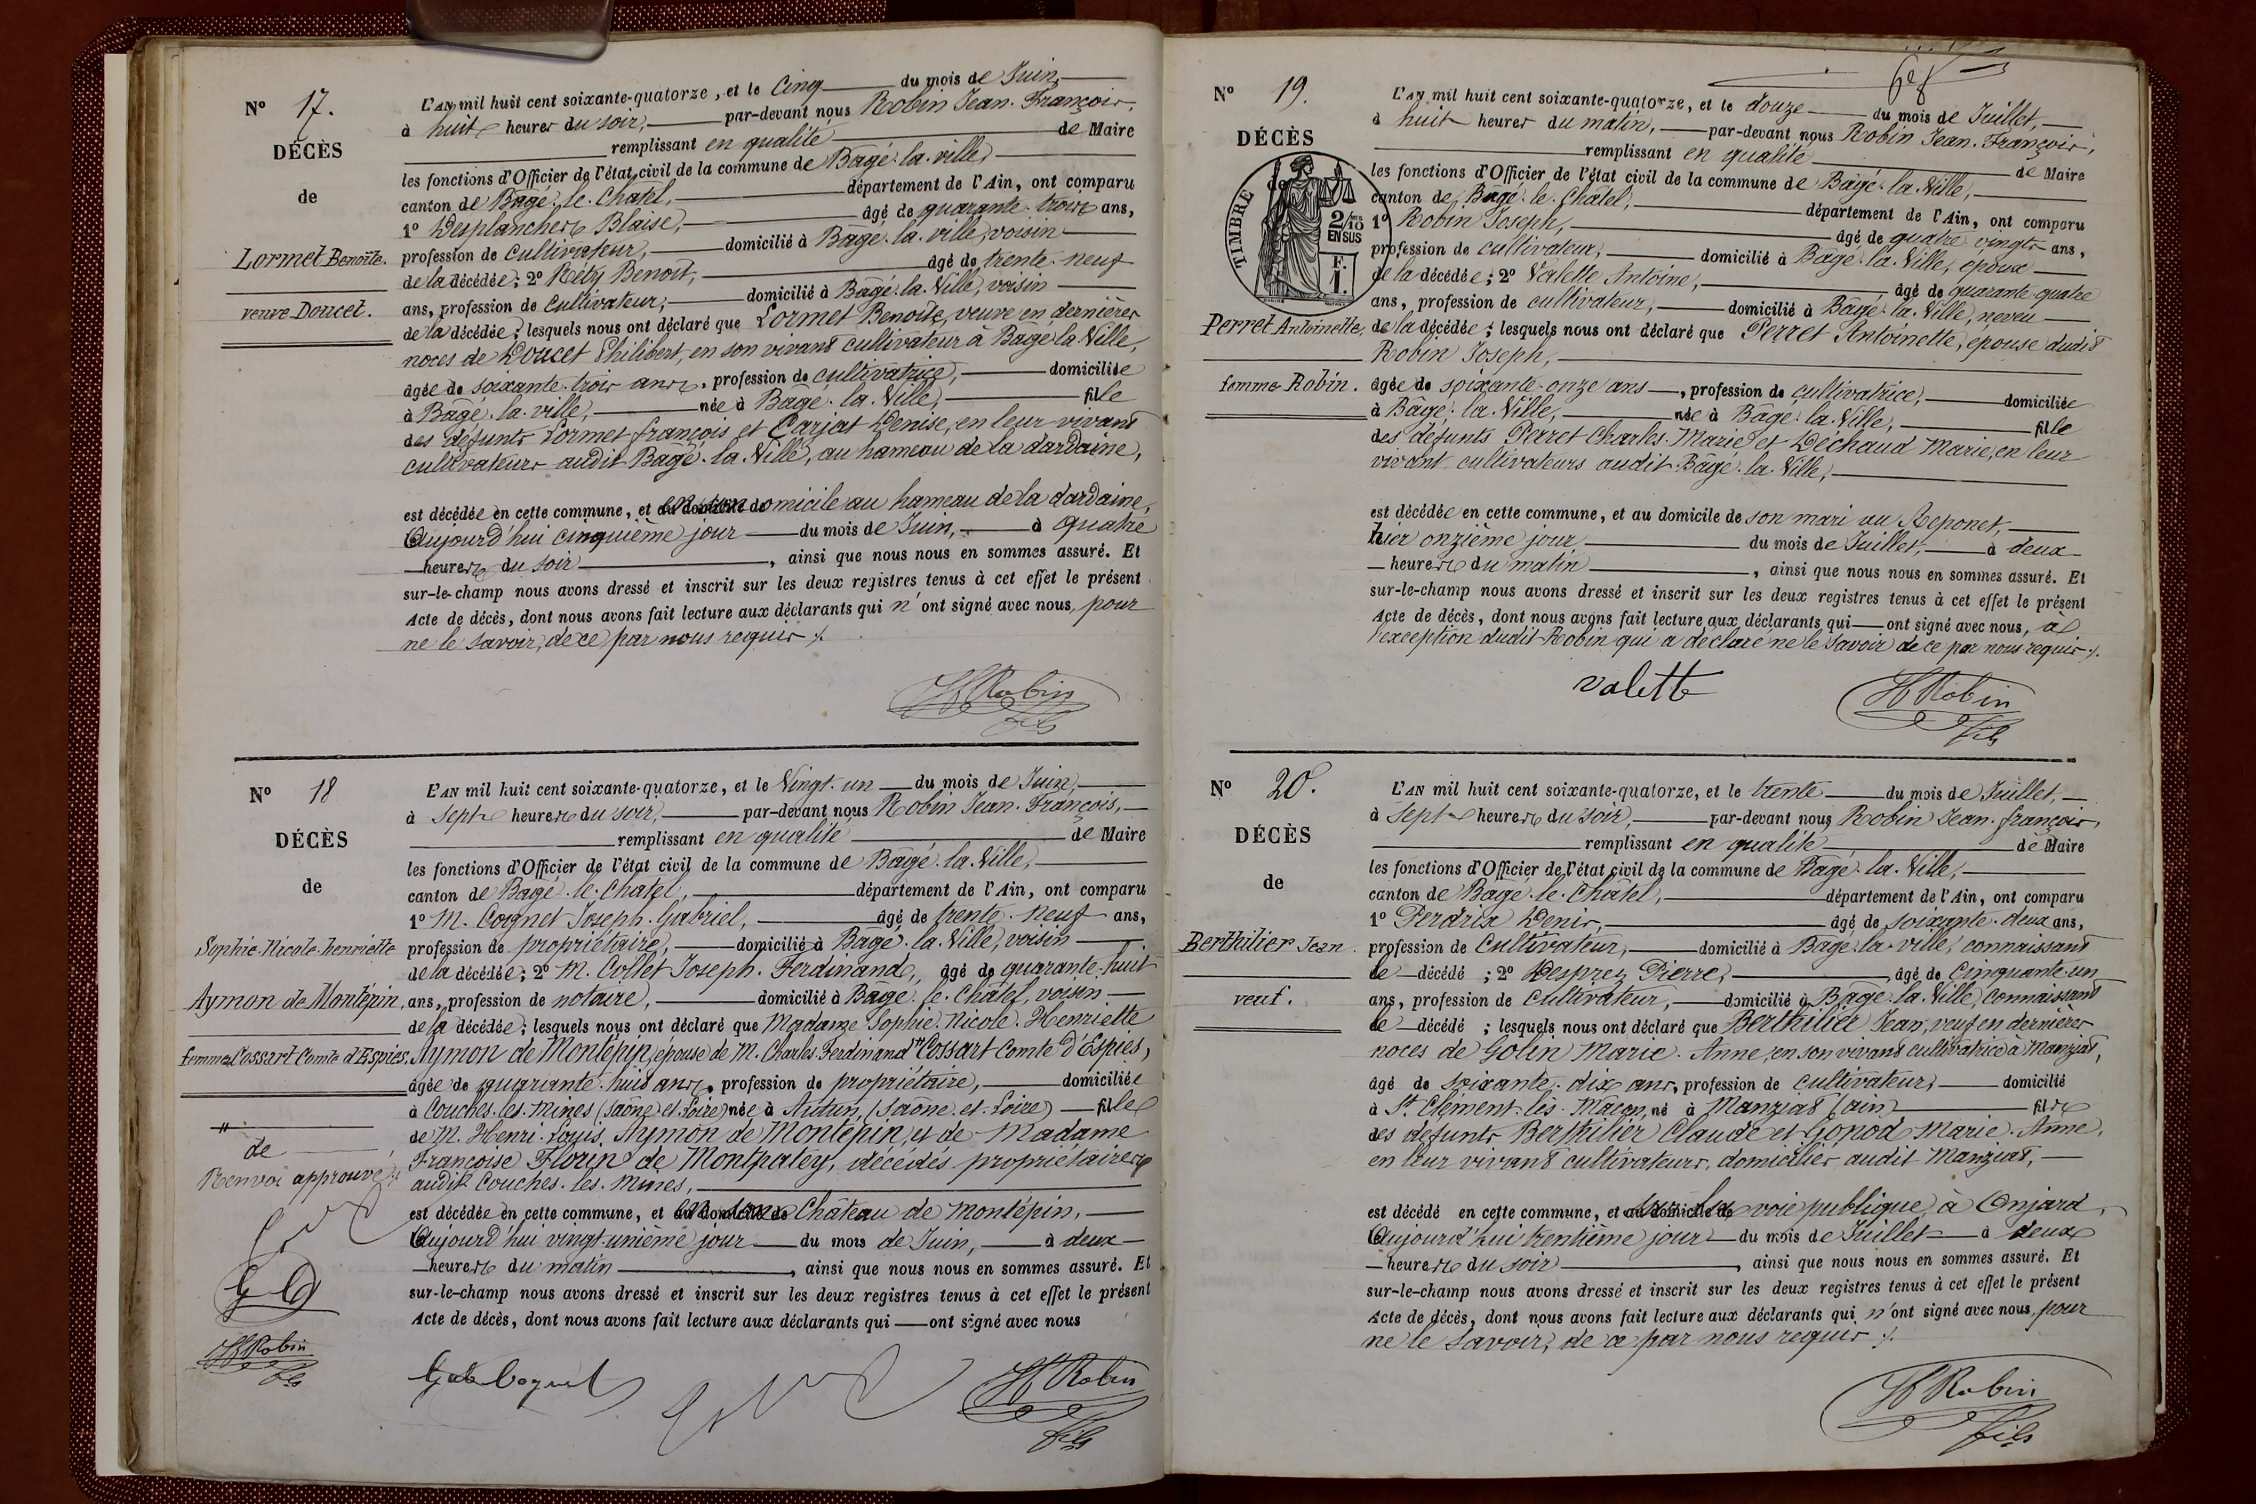 N° 17.
DÉCÈS
de
Lormet Benoîte.
veuve Doucet.
L'AN mil huit cent soixante-quatorze, et le Cinq du mois de Juin,
à huit heures du soir, par-devant nous Robin Jean-François,
remplissant en qualité de Maire
les fonctions d'Officier de l'état civil de la commune de Bâgé-la-ville,
canton de Bâgé-le-Chatel, département de l'Ain, ont comparu
1° Desplanches Blaise, âgé de quarante-trois ans,
profession de Cultivateur, domicilié à Bâgé-la-ville, voisin
de la décédée; 2° Réty Benoît, âgé de trente-neuf
ans, profession de Cultivateur, domicilié à Bâgé-la-Ville, voisin
de la décédée; lesquels nous ont déclaré que Lormet Benoîte, veuve en dernières
noces de Doucet Philibert, en son vivant cultivateur à Bâgé-la-Ville,
âgée de soixante-trois ans, profession de cultivatrice, domiciliée
à Bâgé-la-ville, née à Bâgé-la-Ville, fille
des défunts Lormet françois et Carjat Denise, en leur vivant
cultivateurs audit Bâgé-la-Ville, au hameau de la dardaine,
est décédée en cette commune, et en son domicile au hameau de la dardaine,
Aujourd'hui cinquième jour du mois de Juin, à quatre
heures du soir, ainsi que nous nous en sommes assuré. Et
sur-le-champ nous avons dressé et inscrit sur les deux registres tenus à cet effet le présent
Acte de décès, dont nous avons fait lecture aux déclarants qui n'ont signé avec nous, pour
ne le savoir, de ce par nous requis
Robin
fils
N° 18
DÉCÈS
de
Sophie-Nicole-henriette
Aymon de Montépin,
femme Cossart Comte d'Espies.
"
de
Renvoi approuvé
Robin
fils
L'AN mil huit cent soixante-quatorze, et le Vingt-un du mois de Juin,
à sept heures du soir, par-devant nous Robin Jean-François,
remplissant en qualité de Maire
les fonctions d'Officier de l'état civil de la commune de Bâgé-la-Ville,
canton de Bagé-le-Chatel, département de l'Ain, ont comparu
1° M. Coignet Joseph-Gabriel, âgé de trente-neuf ans,
profession de propriétaire, domicilié à Bâgé-la-Ville, voisin
de la décédée; 2° M. Collet Joseph-Ferdinand, âgé de quarante-huit
ans, profession de notaire, domicilié à Bâgé-le-Châtel, voisin
de la décédée; lesquels nous ont déclaré que Madame Sophie-Nicole-Henriette
Aymon de Montépin, épouse de M. Charles-Ferdinand " Cossart Comte d'Espies,
âgée de quarante-huit ans, profession de propriétaire, domiciliée
à Couches-les-Mines (Saône et Loire) née à Autun, (Saône-et-Loire) fille
de M. Henri-Louis Aymon de Montépin, et de Madame
Françoise Florin de Montpaley, décédés propriétaires
audit Couches-les-Mines,
est décédée en cette commune, et en son Château de Montépin,
Aujourd'hui vingt-unième jour du mois de Juin, à deux
heures du matin, ainsi que nous nous en sommes assuré. Et
sur-le-champ nous avons dressé et inscrit sur les deux registres tenus à cet effet le présent
Acte de décès, dont nous avons fait lecture aux déclarants qui ont signé avec nous
Robin
fils
N° 19.
DÉCÈS
de
TIMBRE
2/10
EN SUS
F.
1.
Perret Antoinette,
femme Robin.
L'AN mil huit cent soixante-quatorze, et le douze du mois de Juillet,
à huit heures du matin, par-devant nous Robin Jean-François,
remplissant en qualité de Maire
les fonctions d'Officier de l'état civil de la commune de Bâgé-la-Ville,
canton de Bâgé-le-Châtel, département de l'Ain, ont comparu
1° Robin Joseph, âgé de quatre-vingts ans,
profession de cultivateur, domicilié à Bâgé-la-Ville, époux
de la décédée; 2° Valette Antoine, âgé de quarante-quatre
ans, profession de cultivateur, domicilié à Bâgé-la-Ville, neveu
de la décédée; lesquels nous ont déclaré que Perret Antoinette, épouse dudit
Robin Joseph,
âgée de soixante-onze ans, profession de cultivatrice, domiciliée
à Bâgé-la-Ville, née à Bâgé-la-Ville, fille
des défunts Perret Charles-Marie et Déchaud Marie, en leur
vivant cultivateurs audit Bâgé-la-Ville,
est décédée en cette commune, et au domicile de son mari au Reponet,
hier onzième jour du mois de Juillet, à deux
heures du matin, ainsi que nous nous en sommes assuré. Et
sur-le-champ nous avons dressé et inscrit sur les deux registres tenus à cet effet le présent
Acte de décès, dont nous avons fait lecture aux déclarants qui ont signé avec nous, à
l'exception dudit Robin qui a déclaré ne le savoir de ce par nous requis
Valette
Robin
fils
N° 20.
DÉCÈS
de
Berthilier Jean.
veuf.
L'AN mil huit cent soixante-quatorze, et le trente du mois de Juillet,
à Sept heures du soir, par-devant nous Robin Jean-françois,
remplissant en qualité de Maire
les fonctions d'Officier de l'état civil de la commune de Bâgé-la-Ville,
canton de Bâgé-le-Châtel, département de l'Ain, ont comparu
1° Perdrix Denis, âgé de soixante-deux ans,
profession de Cultivateur, domicilié à Bâgé-la-ville, connaissant
le décédé; 2° Desprez Pierre, âgé de Cinquante-un
ans, profession de Cultivateur, domicilié à Bâgé-la-Ville, connaissant
le décédé; lesquels nous ont déclaré que Berthilier Jean, veuf en dernières
noces de Golin Marie-Anne, en son vivant cultivatrice à Manziat,
âgé de soixante-dix ans, profession de Cultivateur, domicilié
à St Clément-lès-Mâcon, né à Manziat (ain) fils
des défunts Berthilier Claude et Gonod Marie-Anne,
en leur vivant cultivateurs, domiciliés audit Manziat,
est décédé en cette commune, et sur la voie publique, à Onjard,
Aujourd'hui trentième jour du mois de Juillet à deux
heures du soir, ainsi que nous nous en sommes assuré. Et
sur-le-champ nous avons dressé et inscrit sur les deux registres tenus à cet effet le présent
Acte de décès, dont nous avons fait lecture aux déclarants qui n'ont signé avec nous, pour
ne le savoir, de ce par nous requis
Robin
fils